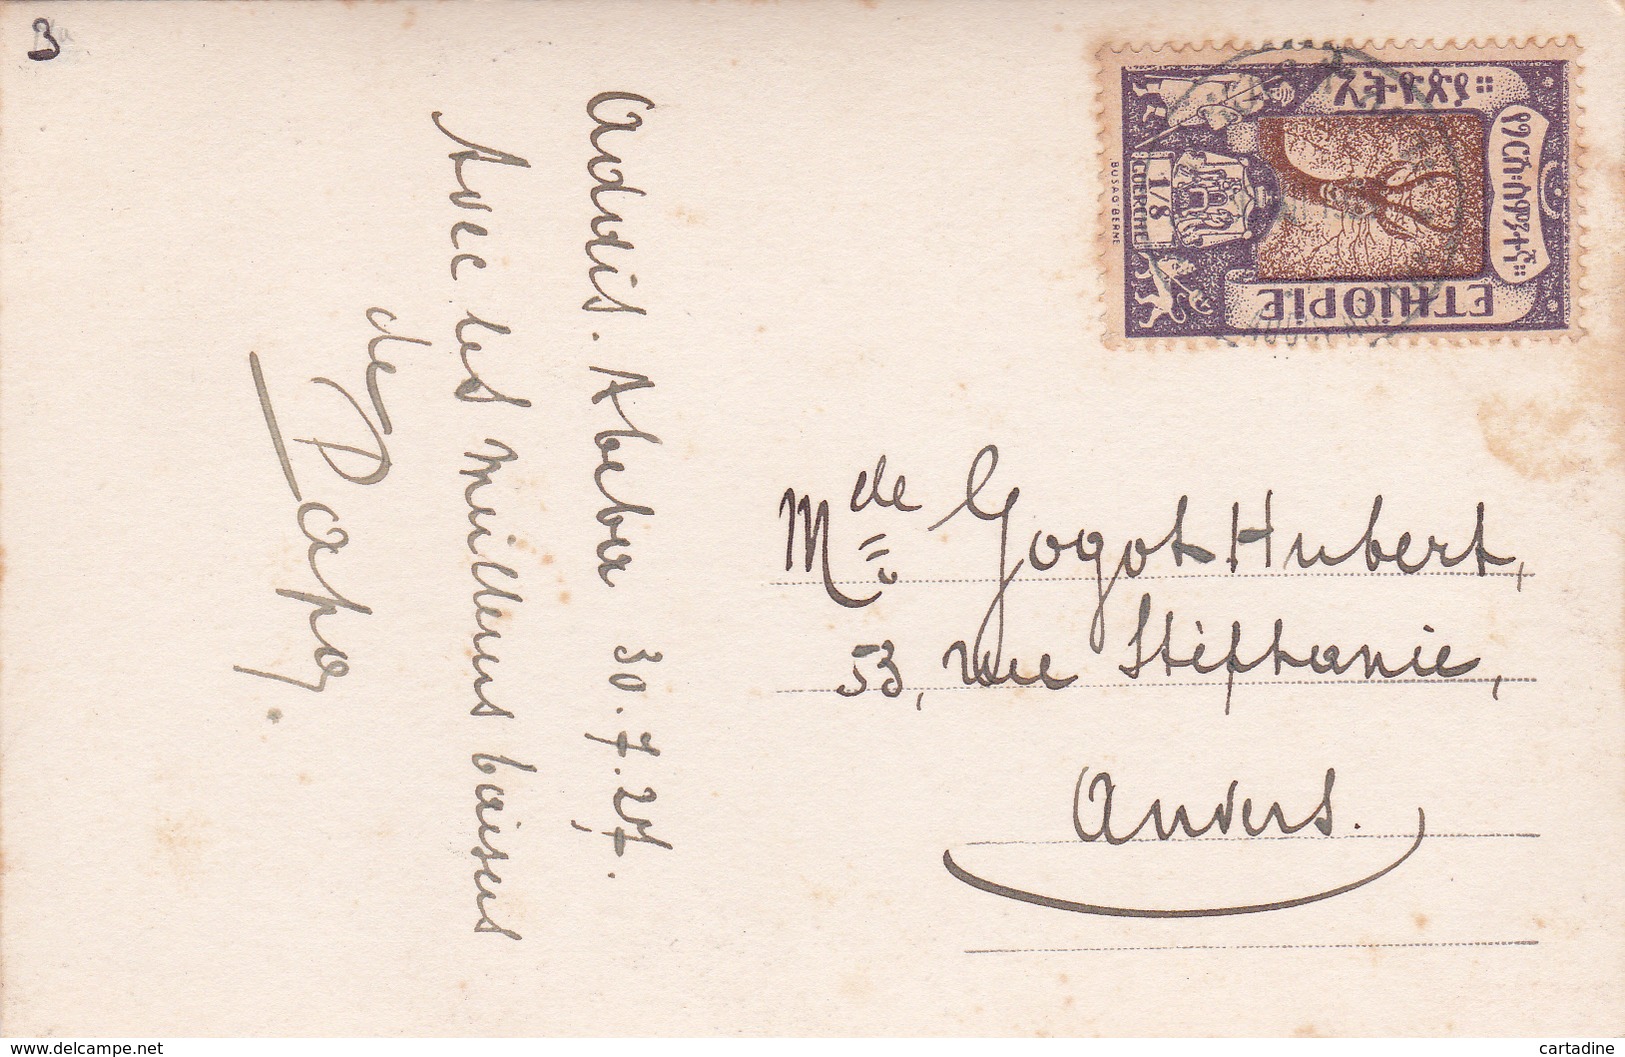 3
Addis. Abeba 30.7.27.
Avec les meilleurs baisers
de Papa.
ኢትዮጵያ፡፡
ETHIOPIE
1/8
GUERCHE
BUSAG BERNE
Mde Gogot Hubert,
53, rue Stéphanie,
Anvers.
www.delcampe.net
cartadine